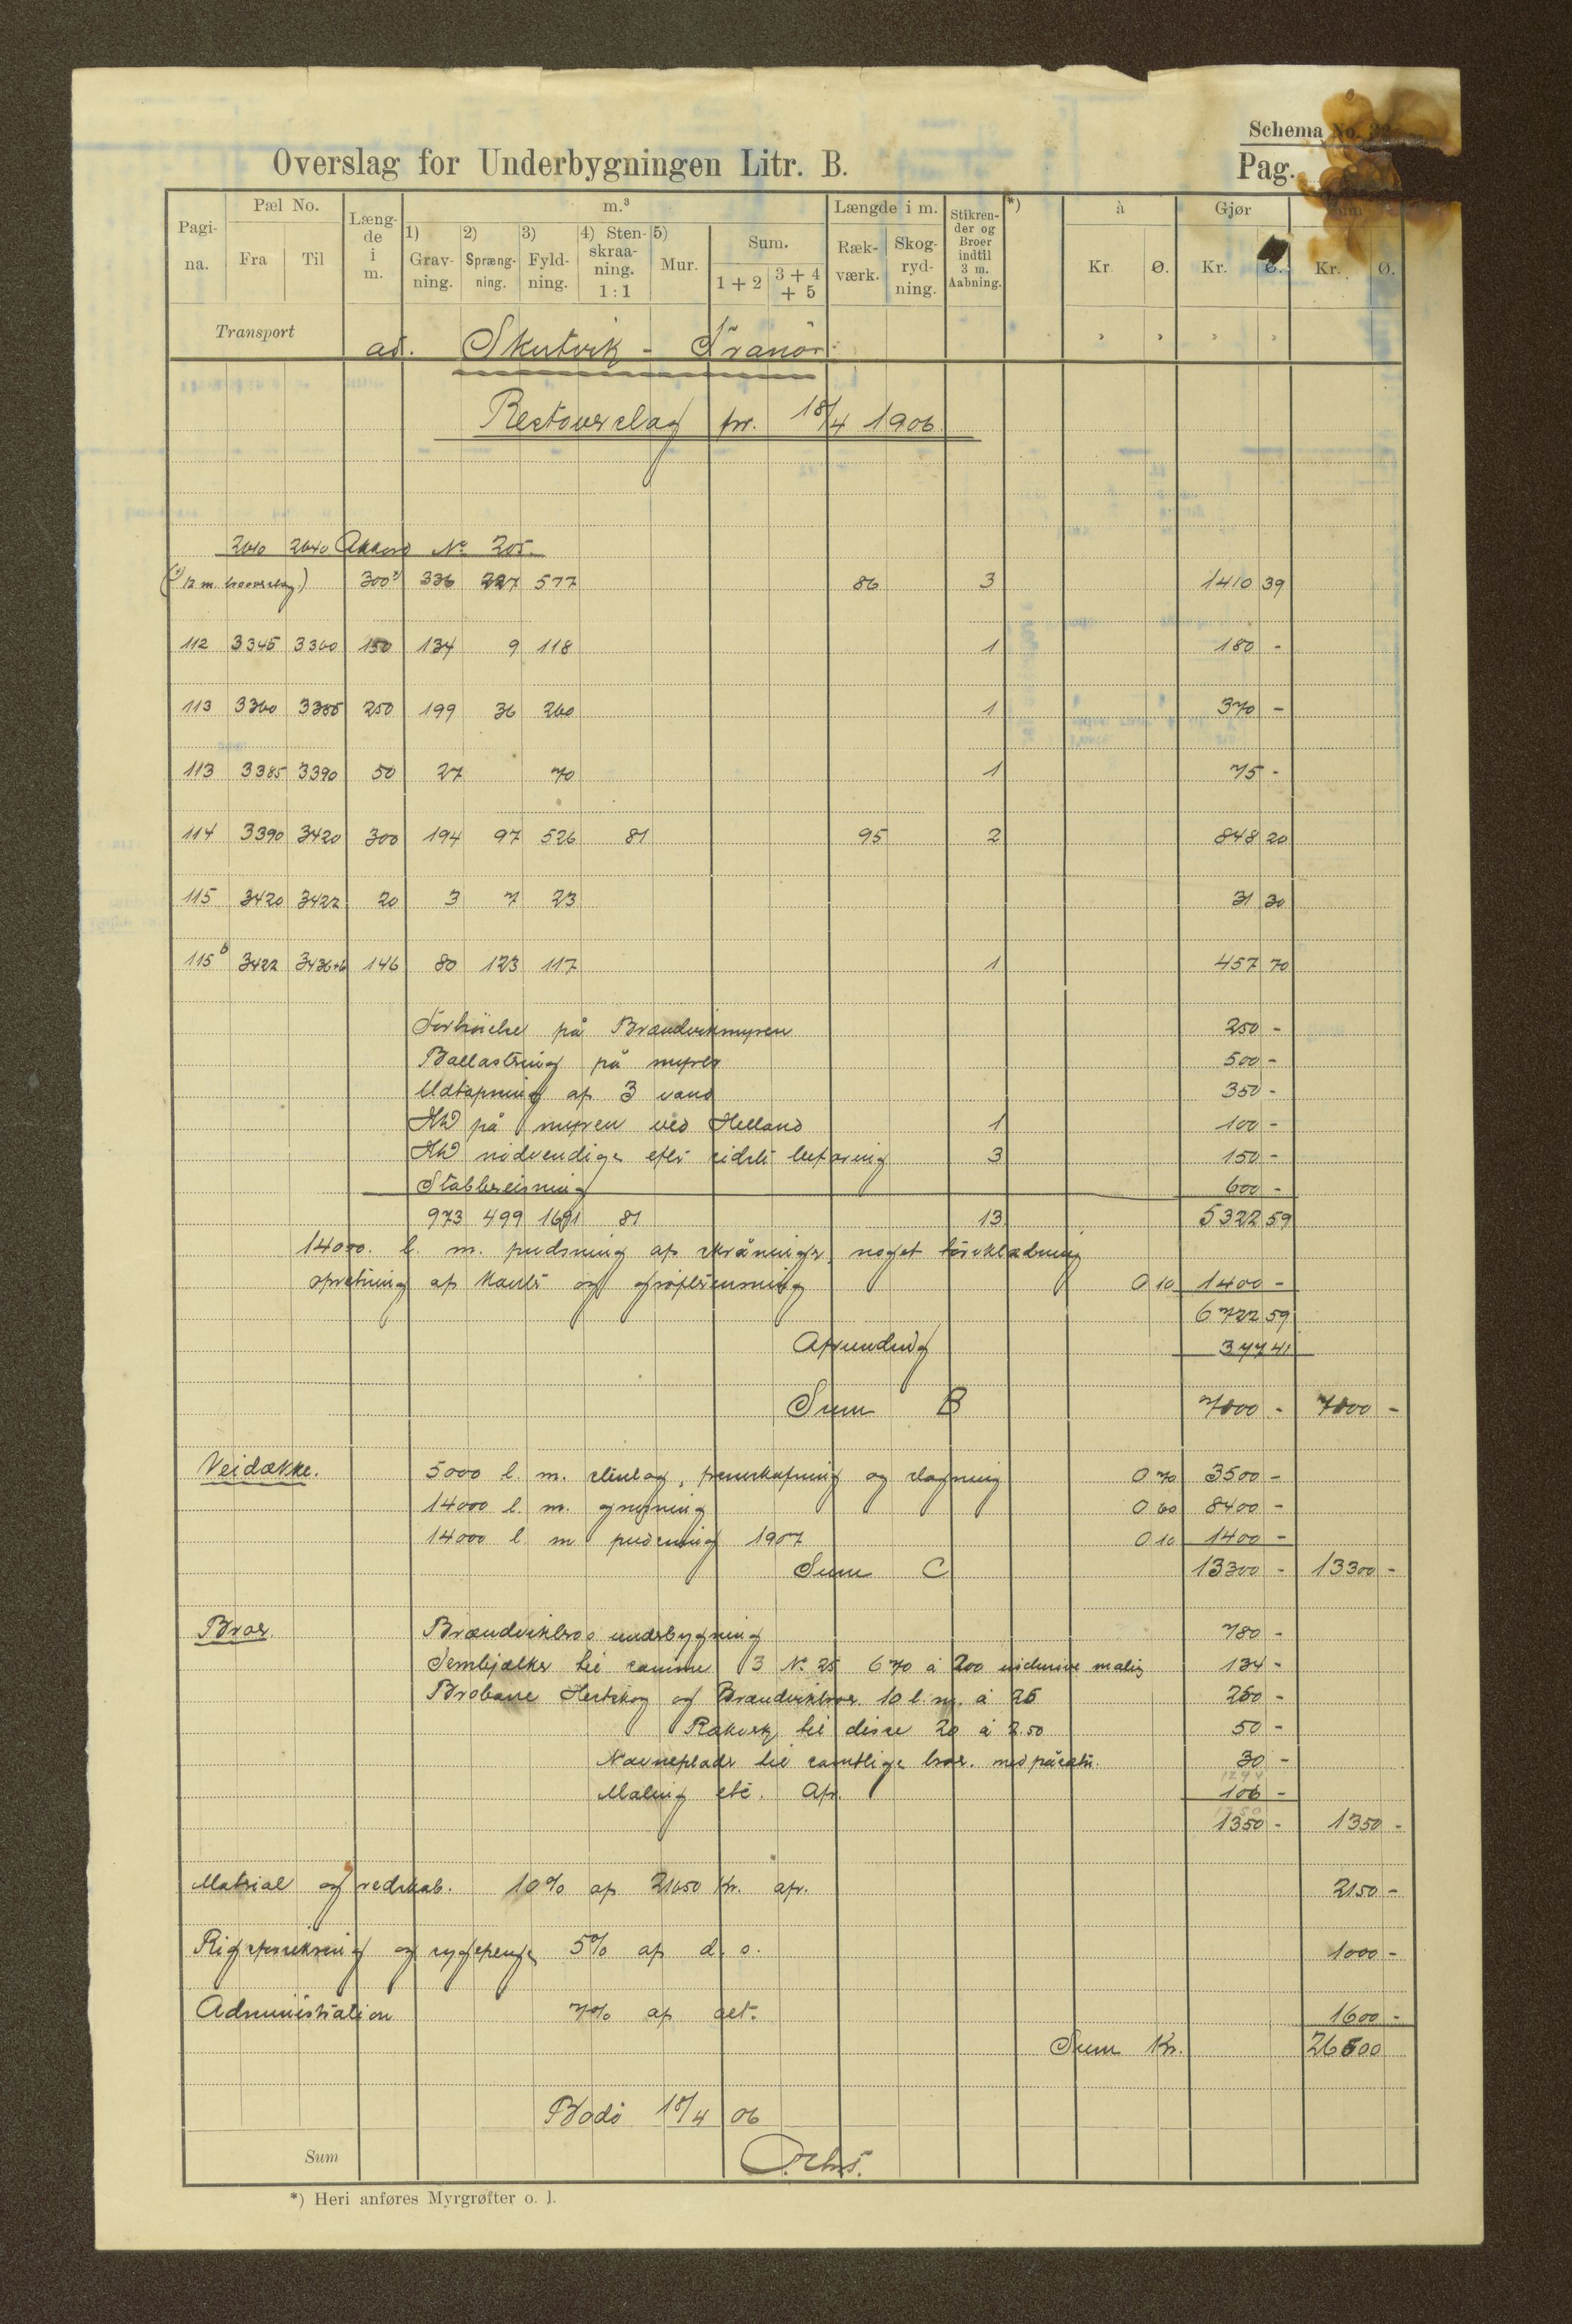 Schema No. 32
Overslag for Underbygningen Litr. B.
Pag.
Pagina. Pæl No. Fra Til Længde i m. m.³ 1) Gravning. 2) Sprængning. 3) Fyldning. 4) Stenskraaning. 1:1 5) Mur. Sum. 1 + 2 3 + 4 + 5 Længde i m. Rækværk. Skogrydning. Stikrender og Broer indtil 3 m. Aabning. *) à Kr. Ø. Gjør Kr. Ø. Sum Kr. Ø.
Transport ad. Skutvik - Tranö.
Restoverslag pr. 18/4 1906.
2610 2640 Akkord No 205.
300 336 227 577 86 3 1410 39
112 3345 3360 150 134 9 118 1 180 -
113 3360 3385 250 199 36 260 1 370 -
113 3385 3390 50 27 70 1 75 -
114 3390 3420 300 194 97 526 81 95 2 848 20
115 3420 3422 20 3 7 23 31 30
115b 3422 3436+6 146 80 123 117 1 457 70
Forhöielse på Brændvikmyren 250 -
Ballastning på myrer 500 -
Udtapning af 3 vand 350 -
på myren ved Helland 1 100 -
nödvendige efter sidste befaring 3 150 -
Stabbereisning 600 -
973 499 1691 81 13 5322 59
14000. l. m. pudsning af skråninger, noget törvklædning
opretning af kanter og gröfterensning 0 10 1400 -
6722 59
Afrunding 377 41
Sum B 7000 - 7000 -
Veidække. 5000 l. m. stenlag, fremskafning og slagning 0 70 3500 -
14000 l. m. grusning 0 60 8400 -
14000 l m pudsning 1907 0 10 1400 -
Sum C 13300 - 13300 -
Broer. Brændvikbros underbygning 780 -
Jernbjælker til samme 3 No 25 670 à 200 inclusive maling 134 -
Brobane Hestskog og Brændvikbroer 10 l. m. à 25 250 -
Rækverk til disse 20 à 2.50 50 -
Navneplader til samtlige broer. med påsætn. 30 -
1244
Maling etc. Afr. 106 -
1350 - 1350 -
Matrial og redskab. 10% af 21650 Kr. afr. 2150 -
Rigsforsikring og sygepenge 5% af d. o. 1000 -
Administration 7% af alt. 1600 -
Sum Kr. 26500
Bodö 18/4 06
Sum
*) Heri anføres Myrgrøfter o. l.